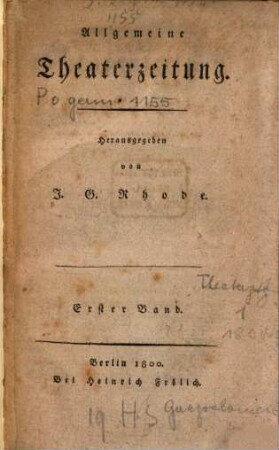 1155
Allgemeine
Theaterzeitung.
P.o germ. 1155
Herausgegeben
von
J. G. Rhode.
Erster Band.
1
Berlin 1800.
Bei Heinrich Frölich.
19